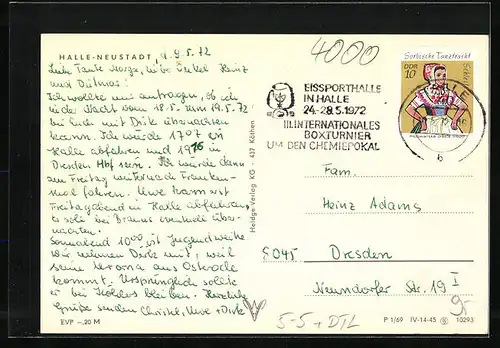 4000
HALLE-NEUSTADT, d. 9.5.72
Liebe Tante Marga, lieber Onkel Heinz
und Dütmos!
Ich wollte mir anfragen, ob ich
in die Stadt vom 18.5. zum 19.5.72
bei Euch mit Dirk übernachten
kann. Ich würde 17.07 in
Halle abfahren und 19.16 in
Dresden Hbf sein. Wir würden dann
am Freitag mit nach Franken-
mal fahren. Uwe kann erst
Freitagabend in Halle abfahren,
er soll bei Brauns eventuell über-
nachten.
Sonnabend 10.00 ist Jugendweihe
Wir nehmen Dirk mit, weil
seine Uroma aus Osterode
kommt. Ursprünglich sollte
er bei bleiben. Herzliche
Grüße senden Christel, Uwe + Dirk
EVP –,20 M
Heldge Verlag KG 437 Köthen
EISSPORTHALLE
IN HALLE
24.-28.5.1972
III.INTERNATIONALES
BOXTURNIER
UM DEN CHEMIEPOKAL
Sorbische Tanztracht
DDR
10
HALLE
b
Fam.
Heinz Adams
8045 Dresden
Neundorfer Str. 19 I
9,-
5-5 + DTL
P 1/69 IV-14-45 10293